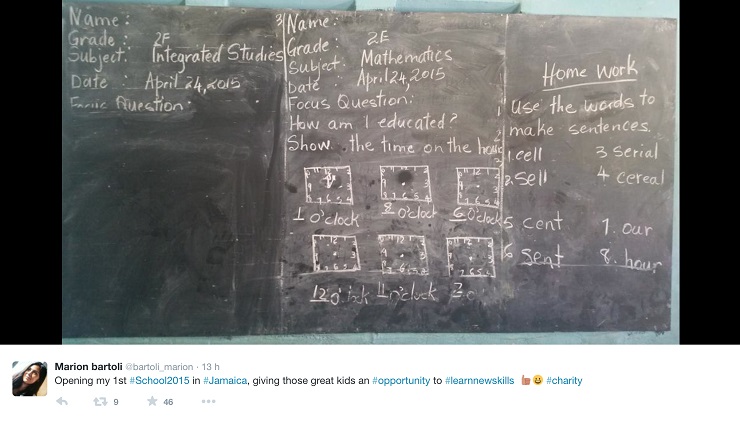 Name:
Grade: 2F
Subject: Integrated Studies
Date: April 24, 2015
Focus Question:
Name:
Grade: 2F
Subject: Mathematics
Date: April 24, 2015
Focus Question:
How am I educated?
Show the time on the
1 o'clock 8 o'clock 6 o'clock
12 11 o'clock 3
Home work
Use the words to
make sentences.
1. cell 3 serial
2. sell 4 cereal
5 cent 7. our
6 sent 8. hour
Marion bartoli @bartoli_marion · 13 h
Opening my 1st #School2015 in #Jamaica, giving those great kids an #opportunity to #learnnewskills #charity
9 46